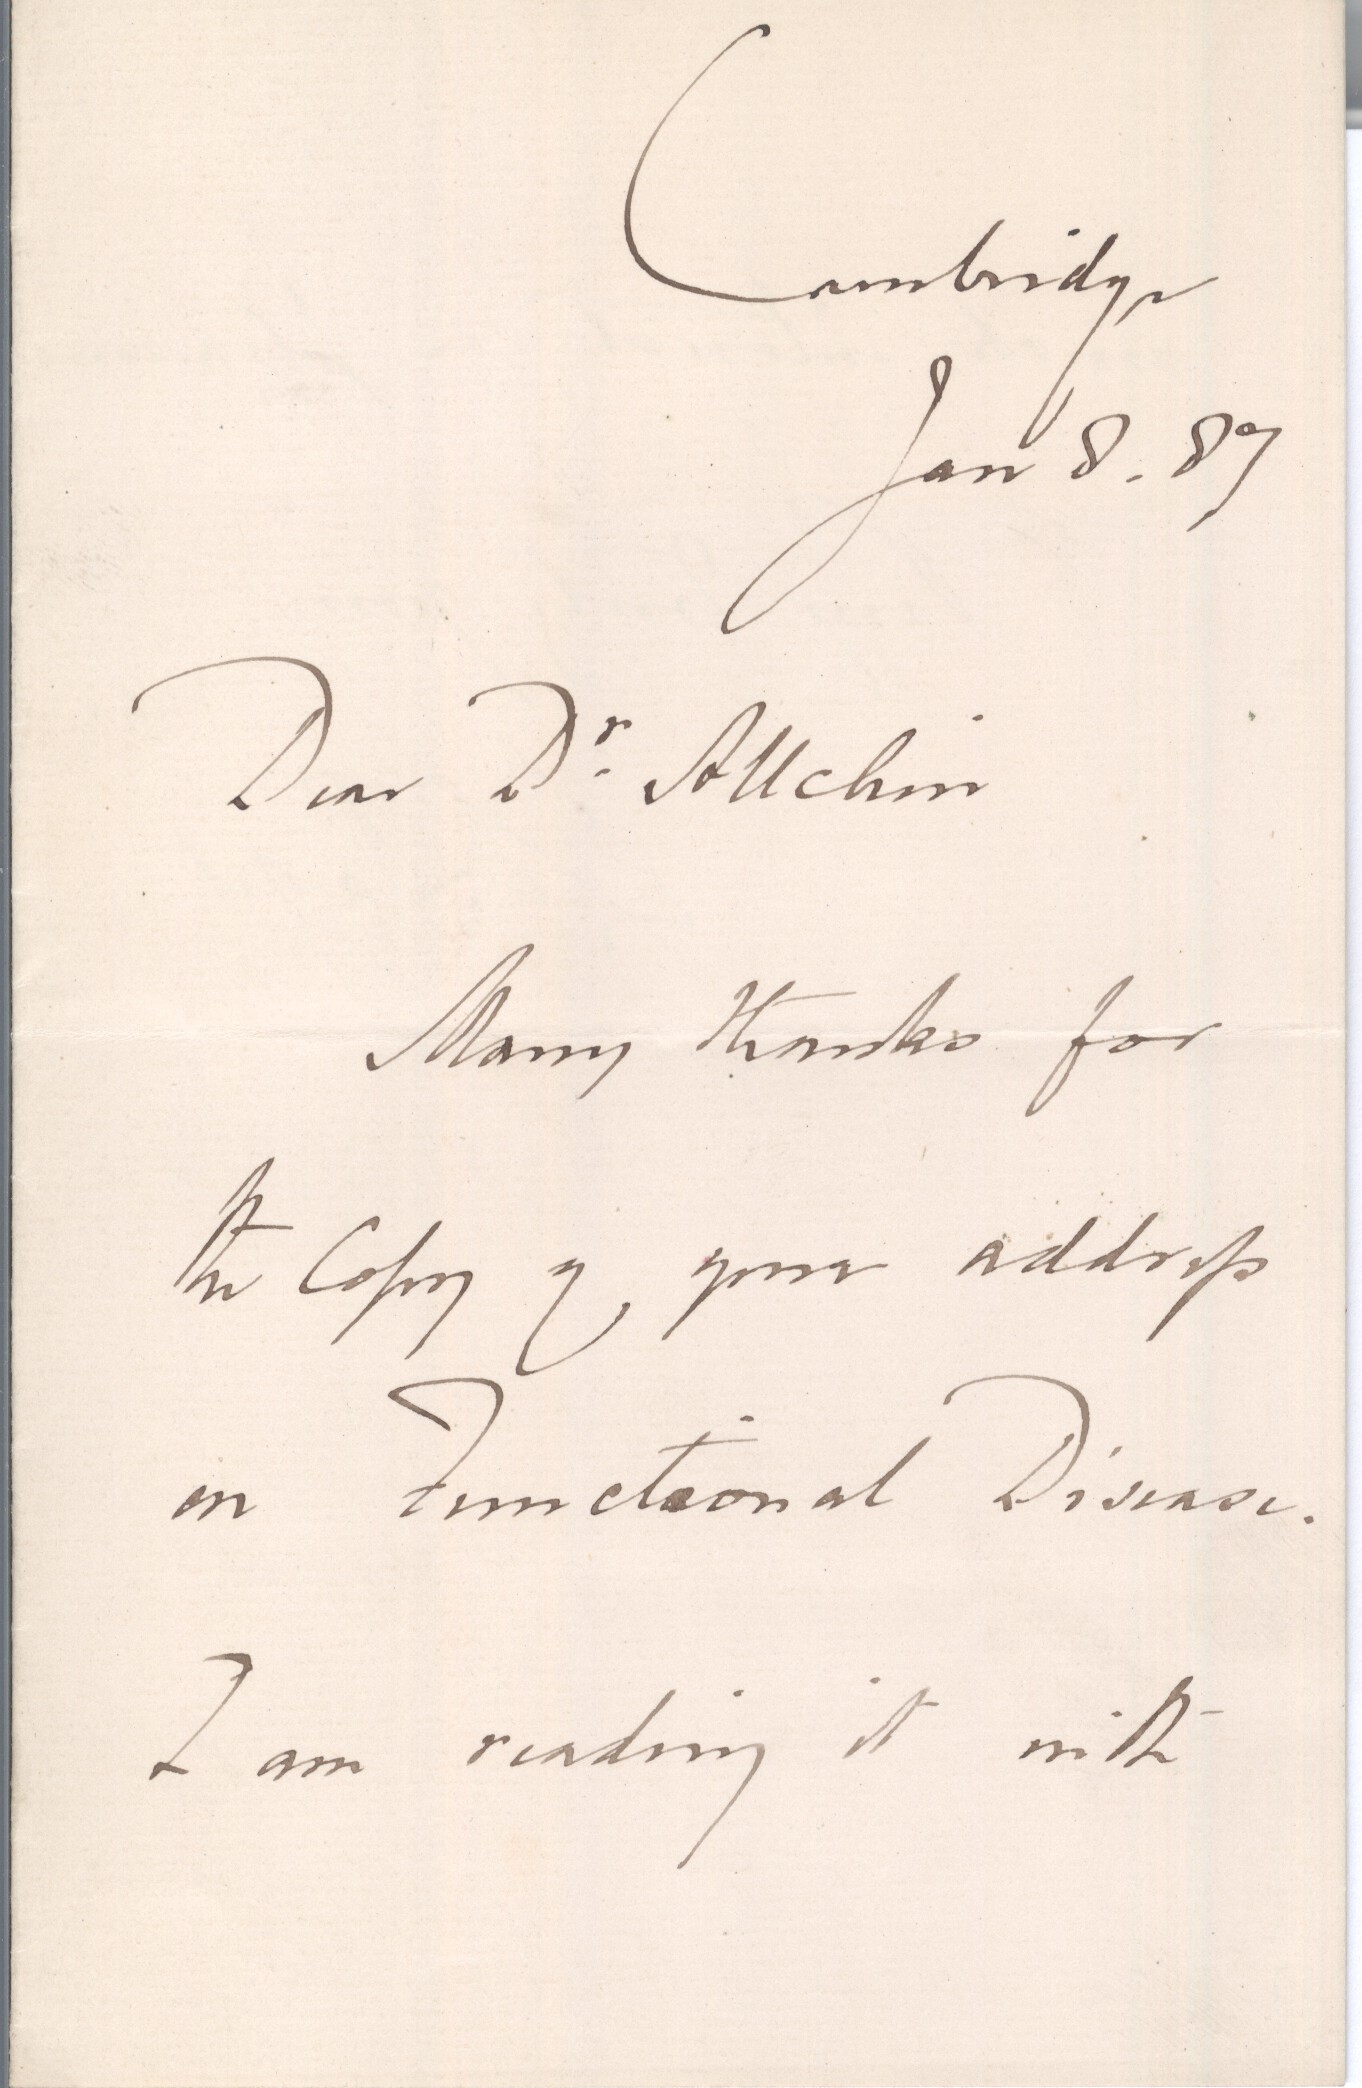 Cambridge
Jan 8. 87
Dear Dr. Allchin
Many thanks for
the Copy of your address
on Functional Disease.
I am reading it with